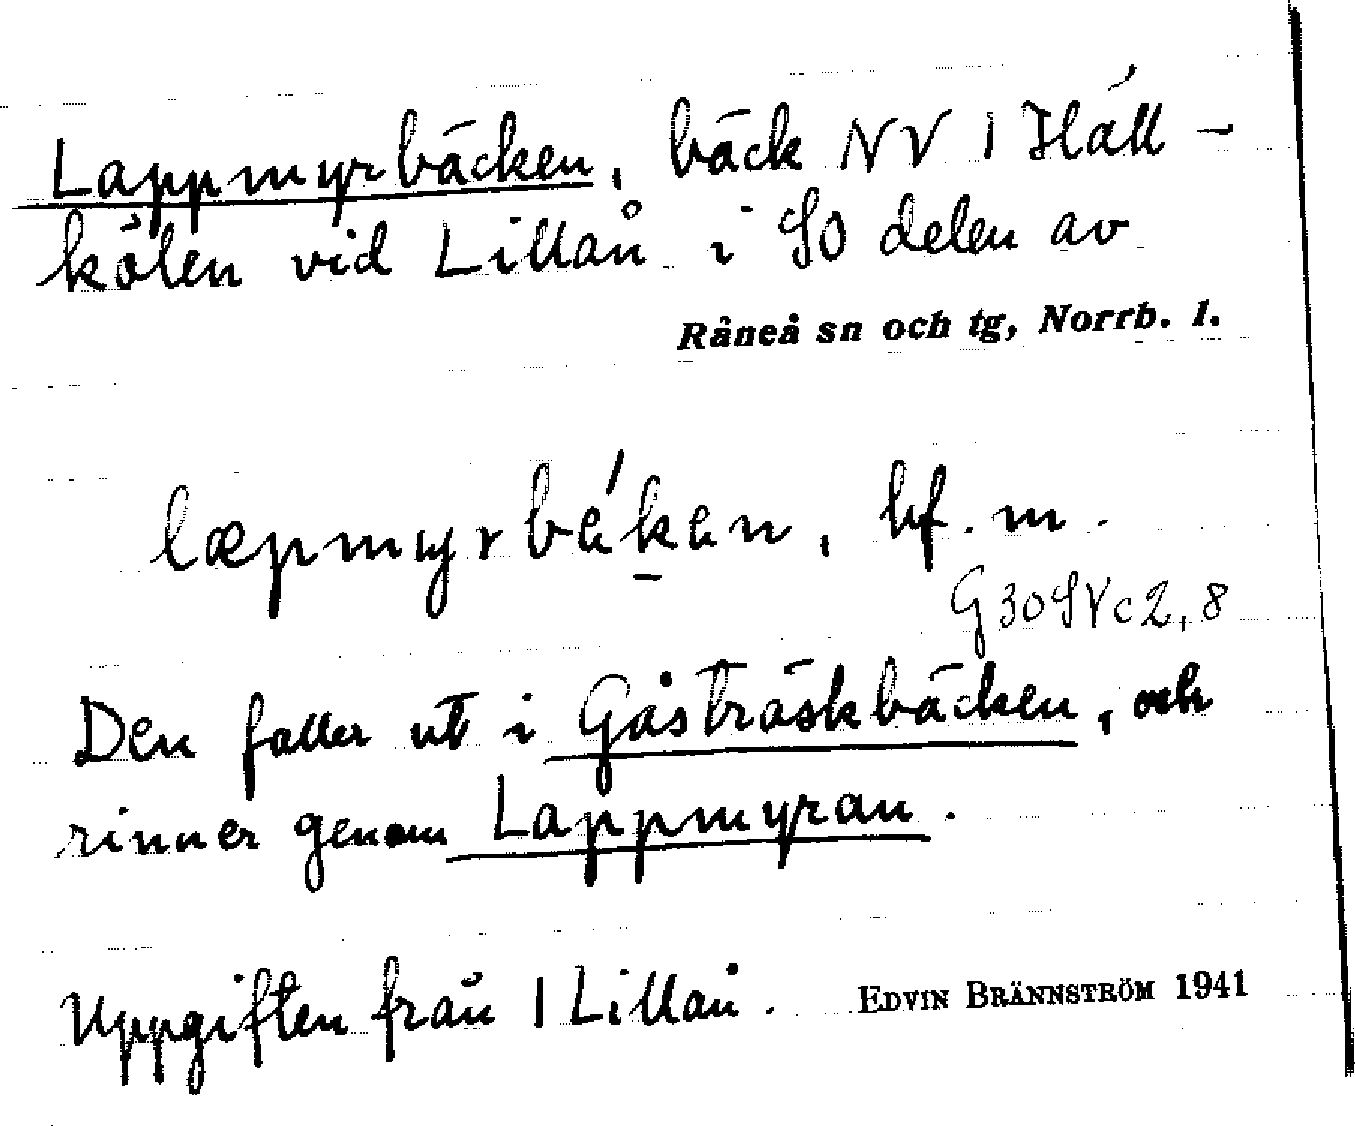 Lappmyrbäcken, bäck NV 1 Häll-
kölen vid Lillån i SO delen av
Råneå sn och tg, Norrb. l.
læpmyrbékan, bf. m.
G30SVc2,8
Den faller ut i Gåsträskbäcken, och
rinner genom Lappmyran.
Uppgiften från 1 Lillån. EDVIN BRÄNNSTRÖM 1941